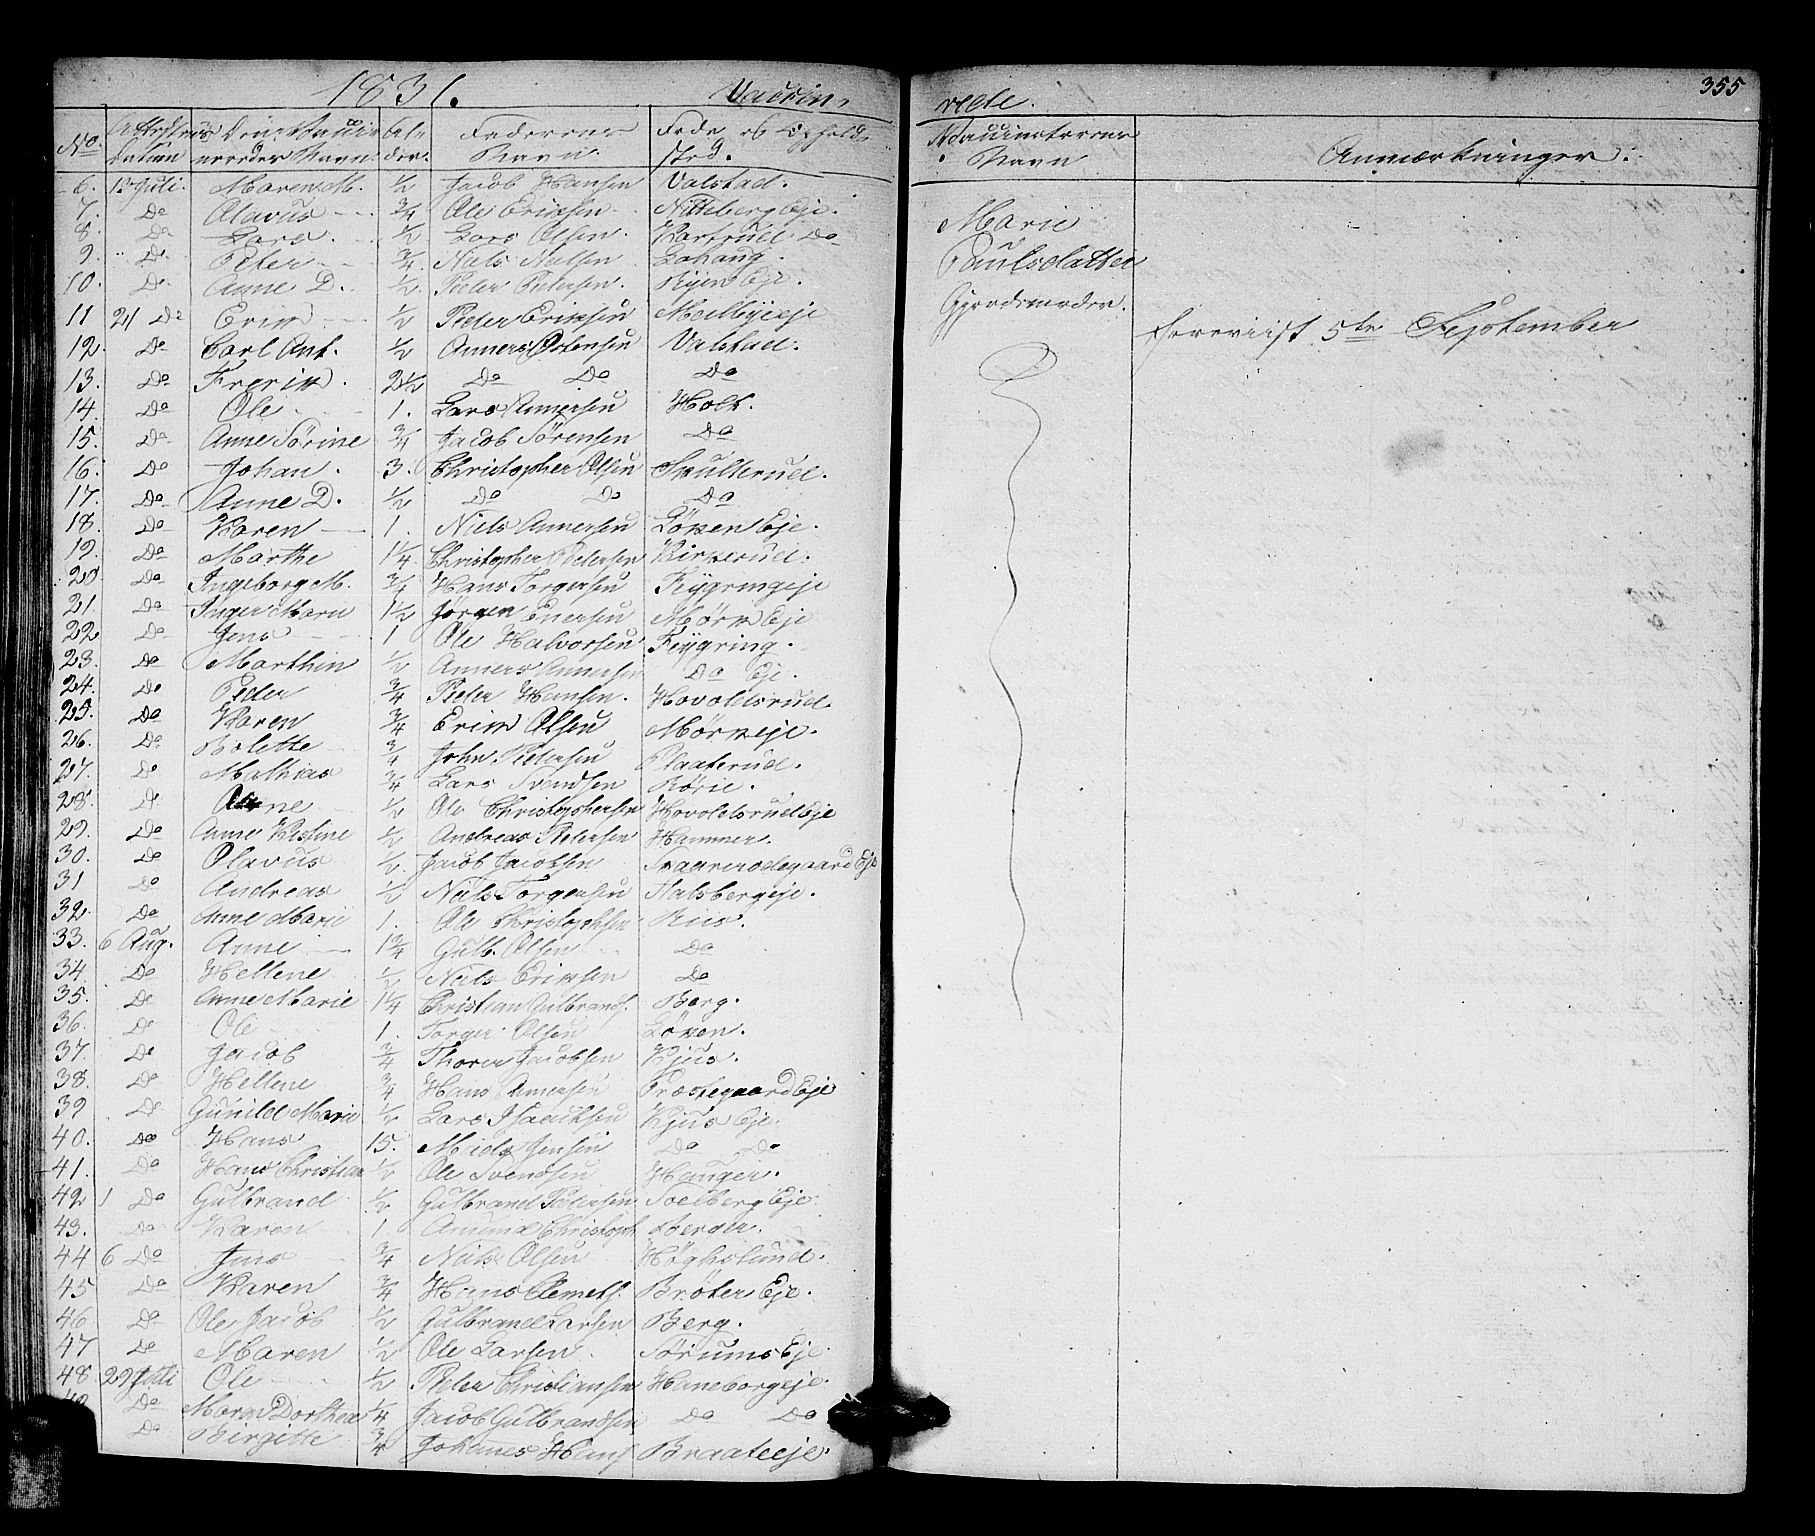 1831. Vaccin,
No. Attestens Datum Den Vaccineredes Navn. Alder. Faderens Navn. Føde og Opholds sted.
6. 13 Juli. Maren M. 1/2 Jacob Hansen Valstad.
7. Do Olavus 3/4 Ole Eriksen Nitteberg Eje.
8. Do Lars. 1/2 Lars Olsen. Do
9. Do Peter 3/4 Niels Nilsen
10. Do Anne D. 1/2 Peder Pedersen. Ryen Eje.
11 21 Do Erik 1/2 Peder Eriksen
12. Do Carl Ant. 1/2 Anners Østensen Valstad.
13. Do Frerik. 2 1/2 Do Do Do
14. Do Ole 1. Lars Annersen Holt.
15. Do Anne Sørine 3/4 Jacob Sørensen Do
16. Do Johan. 3. Christopher Olsen Skullerud.
17. Do Anne D. 1/2 Do Do Do
18. Do Karen 1. Niels Annersen Løken Eje.
19. Do Marthe 1 1/4 Christopher Pedersen Kirkerud.
20. Do Ingeborg M. 3/4 Hans Torgersen Feygringeje
21. Do Inger Marie 1 1/2 Jørgen Enersen Mørk Eje
22 Do Jens 1 Ole Halvorsen Feygring.
23. Do Marthin 1/2 Anners Annersen Do Eje.
24. Do Peder 3/4 Peder Hansen. Hovoldsrud.
25. Do Karen 3/4 Erik Olsen Mørkeje.
26. Do Bolette 3/4 John Pedersen Plaaterud.
27. Do Mathias 3/4 Lars Svendsen
28. Do Anne 1/2 Ole Christophersen Hovoldsrud Eje
29. Do Anne Kirstine 1/2 Andreas Pedersen Hammer.
30. Do Olavus 1/2. Jacob Jacobsen Eje
31 Do Andreas 1/2 Niels Torgersen
32. Do Anne Marie 1. Ole Christophsen Riis.
33. 6 Aug. Anne 1 3/4 Gulb. Olsen Do
34 Do Hellene 1/2 Niels Eriksen Do
35. Do Anne Marie 1 1/4 Christian Gulbrands. Berg.
36. Do Ole 1. Torger Olsen Løken.
37. Do Jacob 3/4 Thorer Jacobsen Kjus.
38. Do Hellene 3/4 Hans Annersen Præstegaard Eje
39 Do Gunild Marie 1/2 Lars Isachsen Kjus Eje.
40. Do Hans 15. Jensen Do Do
41. Do Hans Christian 1/2 Ole Svendsen Hauger.
42 1 Do Gulbrand 1/2 Gulbrand Pedersen Toelberg Eje.
43. Do Karen 1 Amund Christoph. Berger.
44 6 Do Jens 3/4 Niels Olsen
45 Do Karen 3/4 Hans Clemets. Brøter Eje.
46 Do Ole Jacob 1/2 Gulbrand Larsen Berg.
47 Do Maren 1/2 Ole Larsen. Sørums Eje.
48 29 Juli Ole 1/2 Peder Christiansen Haneborgeje.
Do Maren Dorthea 1/4 Jacob Gulbrandsen Do Do
Do Birgitte 3/4 Johannes Hans Braateeje.
355
rede.
Vaccinatorens Navn Anmærkninger.
Marie
Paulsdatter
Gjordemoder.
foreviist 5te September